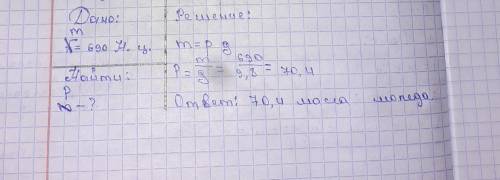 Дано:
m
= 690 Н. ц.
Найти:
p
- ?
Решение:
m = p g
p = m/g = 690/9,8 = 70,4
Ответ: 70,4 масса мопеда.